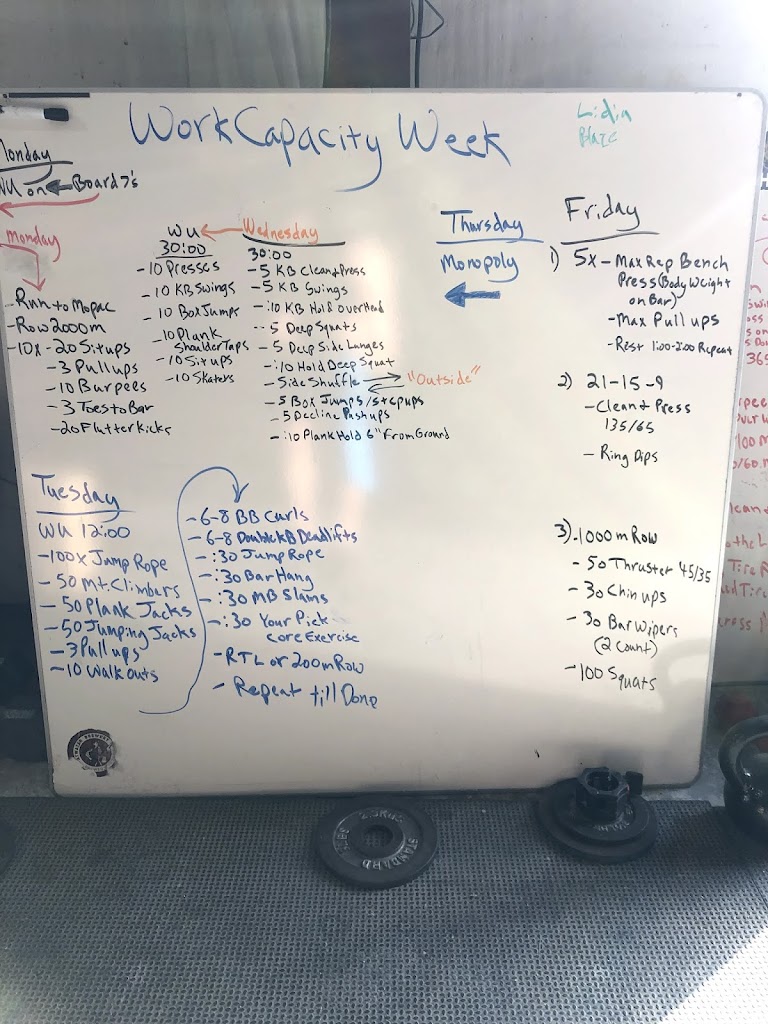 WorkCapacity Week
Lidia
Blaze
Monday
WU on ← Board 7's
Monday
-Run to Mopac
-Row 2000m
-10x -20 Situps
-3 Pullups
-10 Burpees
-3 Toes to Bar
-20 Flutter Kicks
WU
30:00
-10 Presses
-10 KB Swings
-10 Box Jumps
-10 Plank
Shoulder Taps
-10 Situps
-10 Skaters
Wednesday
30:00
-5 KB Clean & Press
-5 KB Swings
-:10 KB Hold overHead
-5 Deep Squats
-5 Deep Side Lunges
-:10 Hold Deep Squat
-Side Shuffle
"Outside"
-5 Box Jumps/stepups
-5 Decline Pushups
-:10 Plank Hold 6" From Ground
Thursday
Monopoly
Friday
1) 5x - Max Rep Bench
Press (Body Weight
on Bar)
-Max Pull ups
-Rest 1:00-2:00 Repeat
2) 21-15-9
-Clean & Press
135/65
-Ring Dips
3) -1000m Row
-50 Thruster 45/35
-30 Chin ups
-30 Bar Wipers
(2 count)
-100 Squats
Tuesday
WU 12:00
-100x Jump Rope
-50 Mt. Climbers
-50 Plank Jacks
-50 Jumping Jacks
-3 Pull ups
-10 Walk outs
-6-8 BB Curls
-6-8 Double KB Deadlifts
-:30 Jump Rope
-:30 Bar Hang
-:30 MB Slams
-:30 Your Pick
core Exercise
-RTL or 200m Row
-Repeat till Done
STANDARD